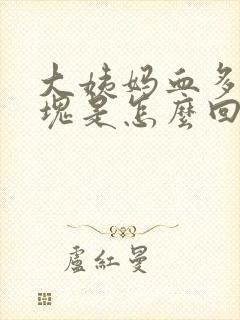 大姨妈血多
塊是怎麼回
盧紅曼